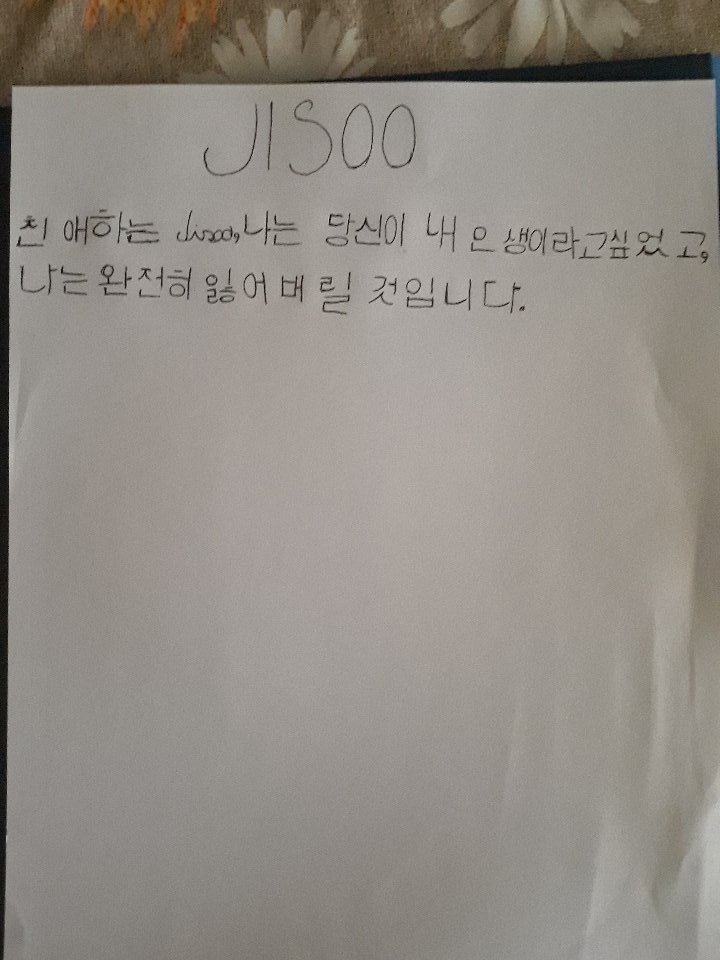 JISOO
친애하는 Jisoo, 나는 당신이 내 은 생이라고싶었고,
나는 완전히 잃어버릴 것입니다.